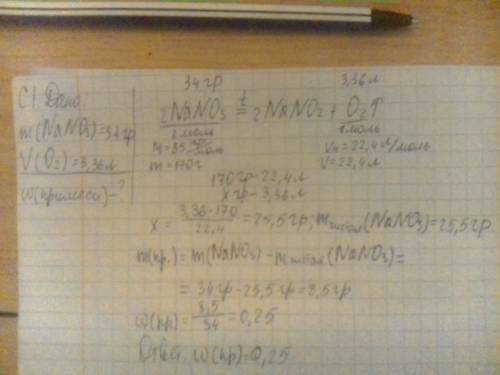 С1. Дано:
m(NaNO3)=34гр
V(O2)=3,36л
w(примеси)-?
34гр 3,36л
2NaNO3 =t 2NaNO2 + O2↑
2моль 1моль
M=85гр/моль Vм=22,4л/моль
m=170г V=22,4л
170гр-22,4л
xгр-3,36л
x = 3,36·170/22,4 = 25,5гр, mчистая(NaNO3)=25,5гр
m(пр.)=m(NaNO3)-mчистая(NaNO3)=
=34гр-25,5гр=8,5гр
w(пр)=8,5/34=0,25
Ответ: w(пр)=0,25